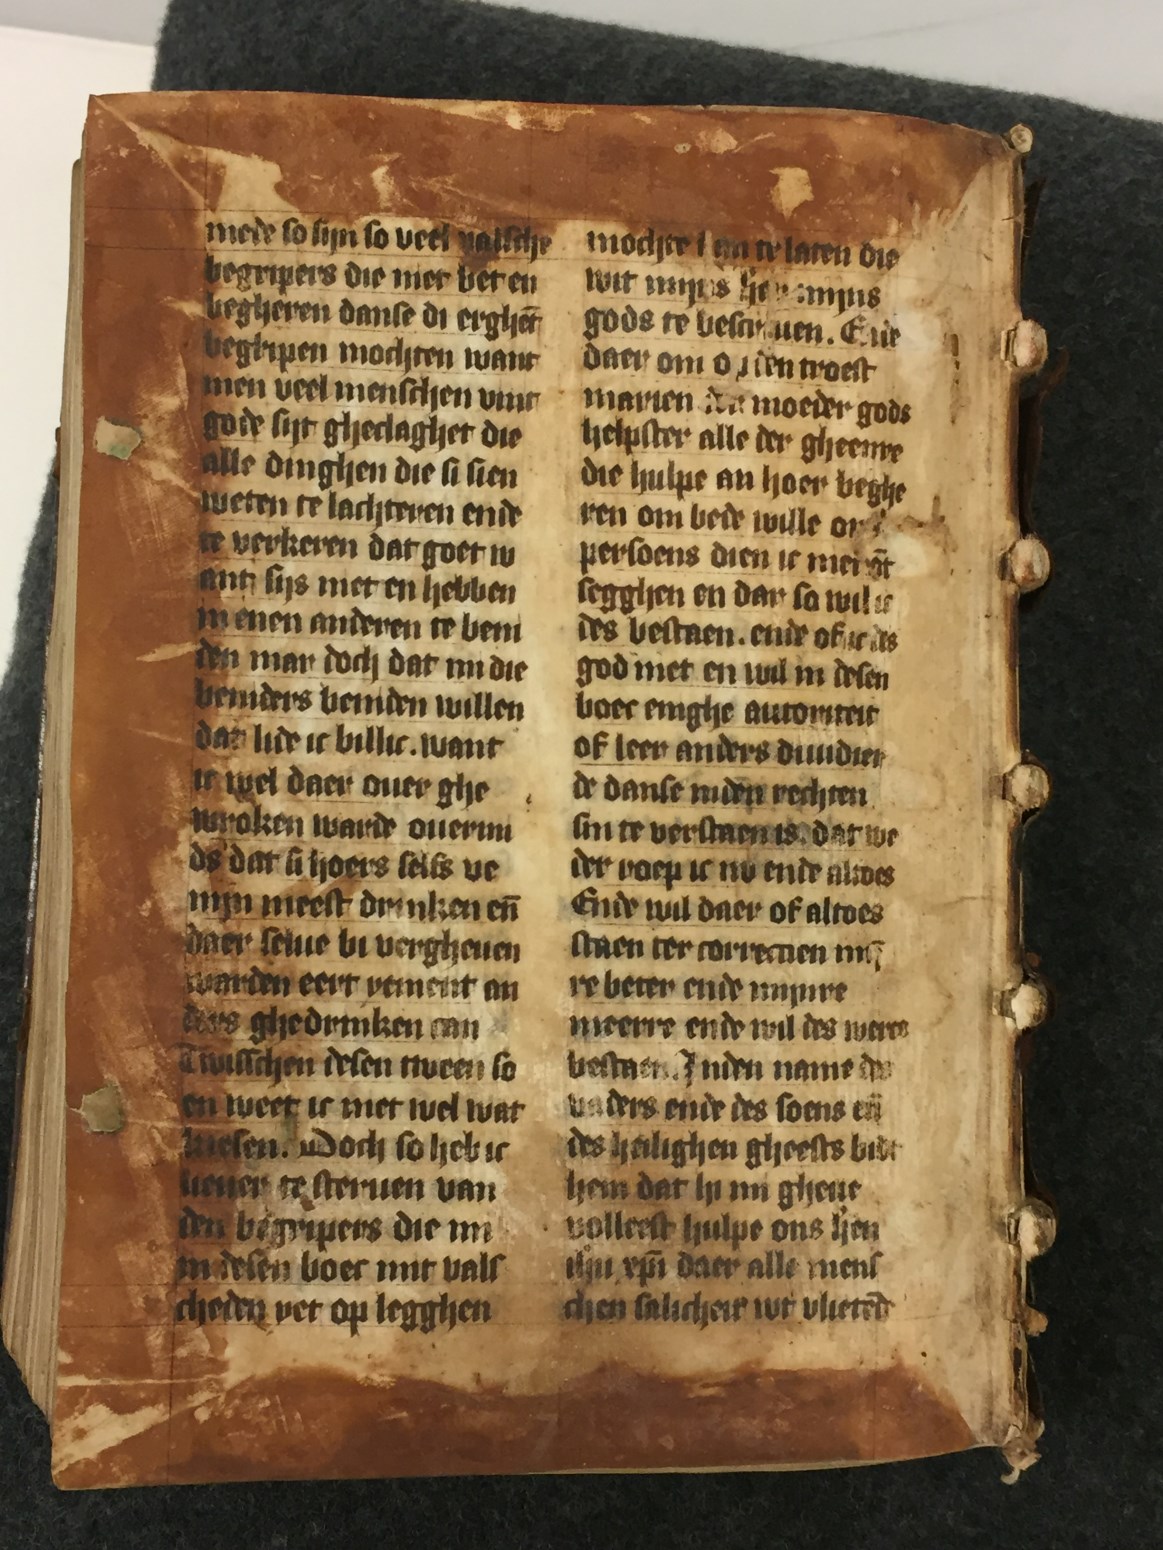 mede so sijn so veel valsche
begripers die niet bet en
begheren danse di erghēt
begripen mochten want
men veel menschen vint
gode sijt gheclaghet die
alle dinghen die si sien
weten te lachteren ende
te verkeren dat goet w
ant sijs niet en hebben
in enen anderen te beni
den mar doch dat mi die
beniders beniden willen
dat lide ic billic. want
ic wel daer ouer ghe
wroken warde ouermi
ds dat si hoers selfs ve
nijn meest drinken en̄
daer selue bi vergheuen
warden eert yement an
ders ghedrinken can
Twisschen desen tween so
en weet ic niet wel wat
kiesen. Doch so heb ic
lieuer te steruen van
den begripers die mi
in desen boec mit vals
cheden yet op legghen
mochte te laten die
wit mijns mijns
gods te bescriuen. Ende
daer om op den troest
marien der moeder gods
helpster alle der gheenre
die hulpe an hoer beghe
ren om bede wille
persoens dien ic niet
segghen en dar so wil ic
des bestaen. ende of ic des
god niet en wil in desen
boec enighe autoriteit
of leer anders duudier
de danse inden rechten
sin te verstaen is. dat we
der roep ic nv ende altoes
Ende wil daer of altoes
staen ter correctien
re beter ende mijnre
meerre ende wil des werc
bestaen. Inden name des
vaders ende des soens en̄
des heilighen gheests bidt
hem dat hi mi gheue
volleest hulpe ons hen
ihu xp̄i daer alle mens
chen salicheit wt vlietēd